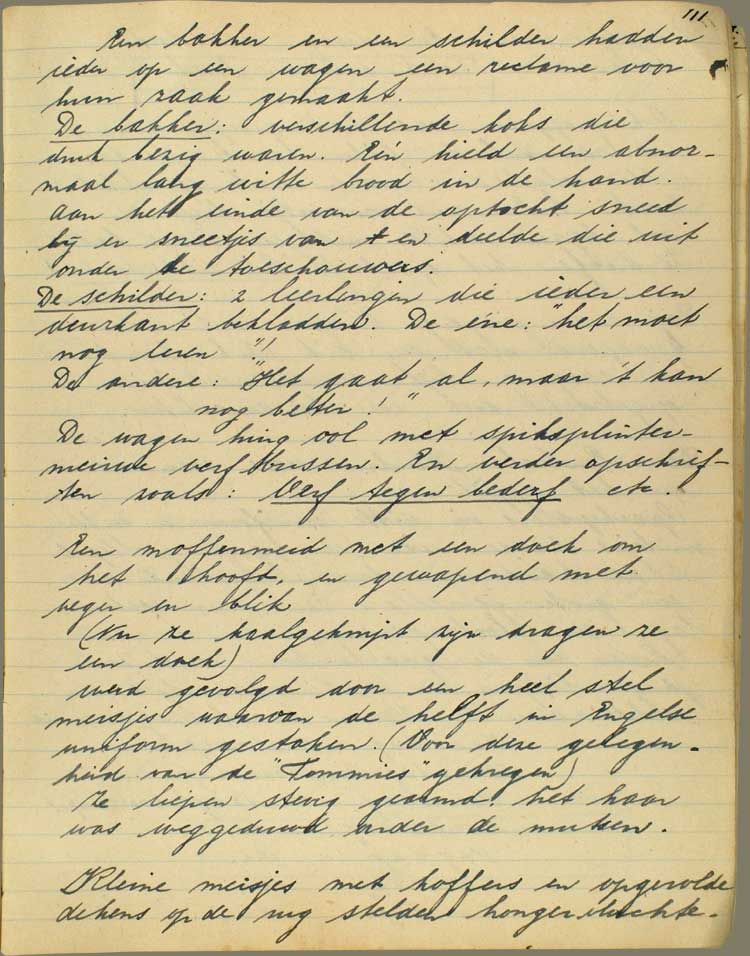 111
Een bakker en een schilder hadden
ieder op een wagen een reclame voor
hun zaak gemaakt.
De bakker: verschillende koks die
druk bezig waren. Eén hield een abnor-
maal lang witte brood in de hand.
Aan het einde van de optocht sneed
hij er sneetjes van en deelde die uit
onder de toeschouwers.
De schilder: 2 leerlingen die ieder een
deurkant bekladden. De ene: "het moet
nog leren"!!
De andere: "Het gaat al, maar 't kan
nog beter!"
De wagen hing ook met spiksplinter-
nieuwe verfbussen. En verder opschrif-
ten zoals: Verf tegen bederf etc.
Een moffenmeid met een doek om
het hoofd, en gewapend met
veger en blik
(Nu ze kaalgeknipt zijn dragen ze
een doek)
werd gevolgd door een heel stel
meisjes waarvan de helft in Engelse
uniform gestoken. (Voor deze gelegen-
heid van de "Tommies" gekregen)
Ze liepen stevig gearmd. het haar
was weggeduwd onder de mutsen.
Kleine meisjes met koffers en opgerolde
dekens op de rug stelden hongervluchte-